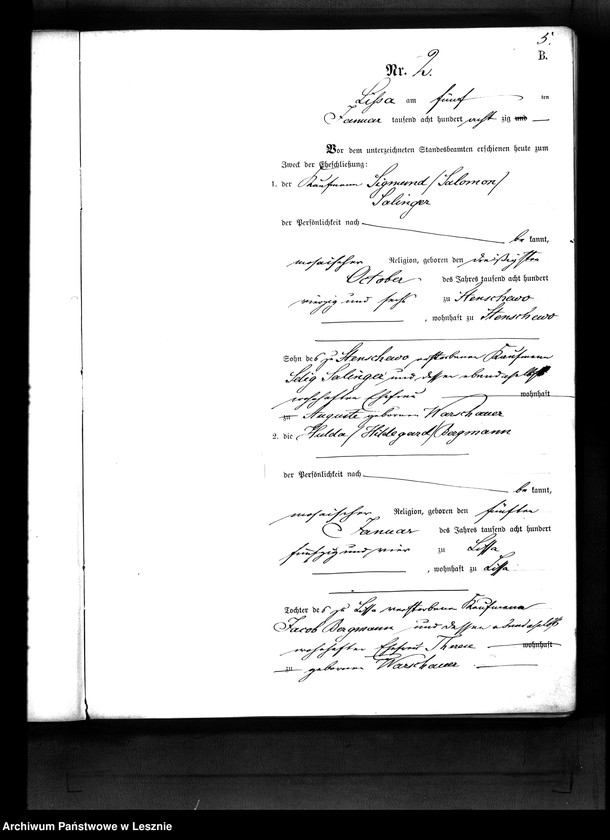 5.
B.
Nr. 2.
Lissa am fünf ten
Januar tausend acht hundert acht zig und
Vor dem unterzeichneten Standesbeamten erschienen heute zum
Zweck der Eheschließung:
1. der Kaufmann Sigmund /Salomon/
Salinger
der Persönlichkeit nach
be kannt,
mosaischer Religion, geboren den dreißigsten
October des Jahres tausend acht hundert
vierzig und sechs zu Stenschewo
, wohnhaft zu Stenschewo
Sohn des zu Stenschewo verstorbenen Kaufmann
Selig Salinger und dessen ebendaselbst
wohnhaften Ehefrau wohnhaft
zu Auguste geborenen Warschauer
2. die Hulda /Hildegard/ Bergmann
der Persönlichkeit nach
be kannt,
mosaischer Religion, geboren den fünften
Januar des Jahres tausend acht hundert
fünfzig und vier zu Lissa
, wohnhaft zu Lissa
Tochter des zu Lissa verstorbenen Kaufmann
Jacob Bergmann und dessen ebendaselbst
wohnhaften Ehefrau Therese wohnhaft
zu geborenen Warschauer
Archiwum Państwowe w Lesznie